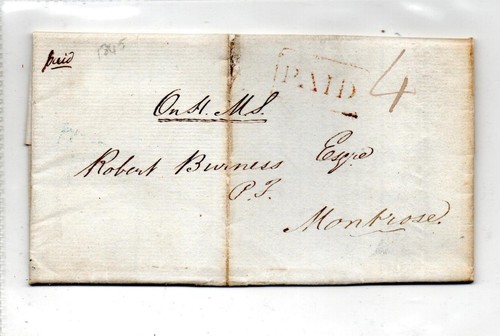 1845
paid
PAID 4
On H. M. S.
Robert Burness Esqre
P. F.
Montrose.